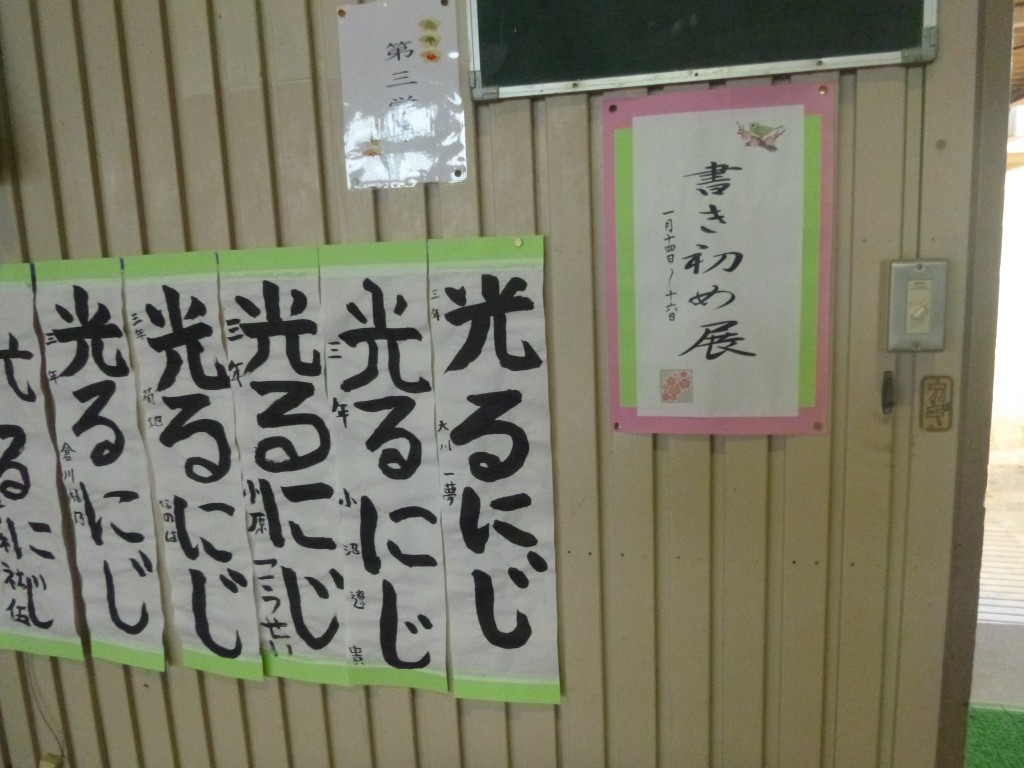 第三学
書き初め展
一月十四日～十六日
光るにじ
三年
大川 一夢
光るにじ
三年
小沼 遼貴
光るにじ
三年
小原 こうせい
光るにじ
三年
菊地 なのは
光るにじ
三年
光るにじ
カギ